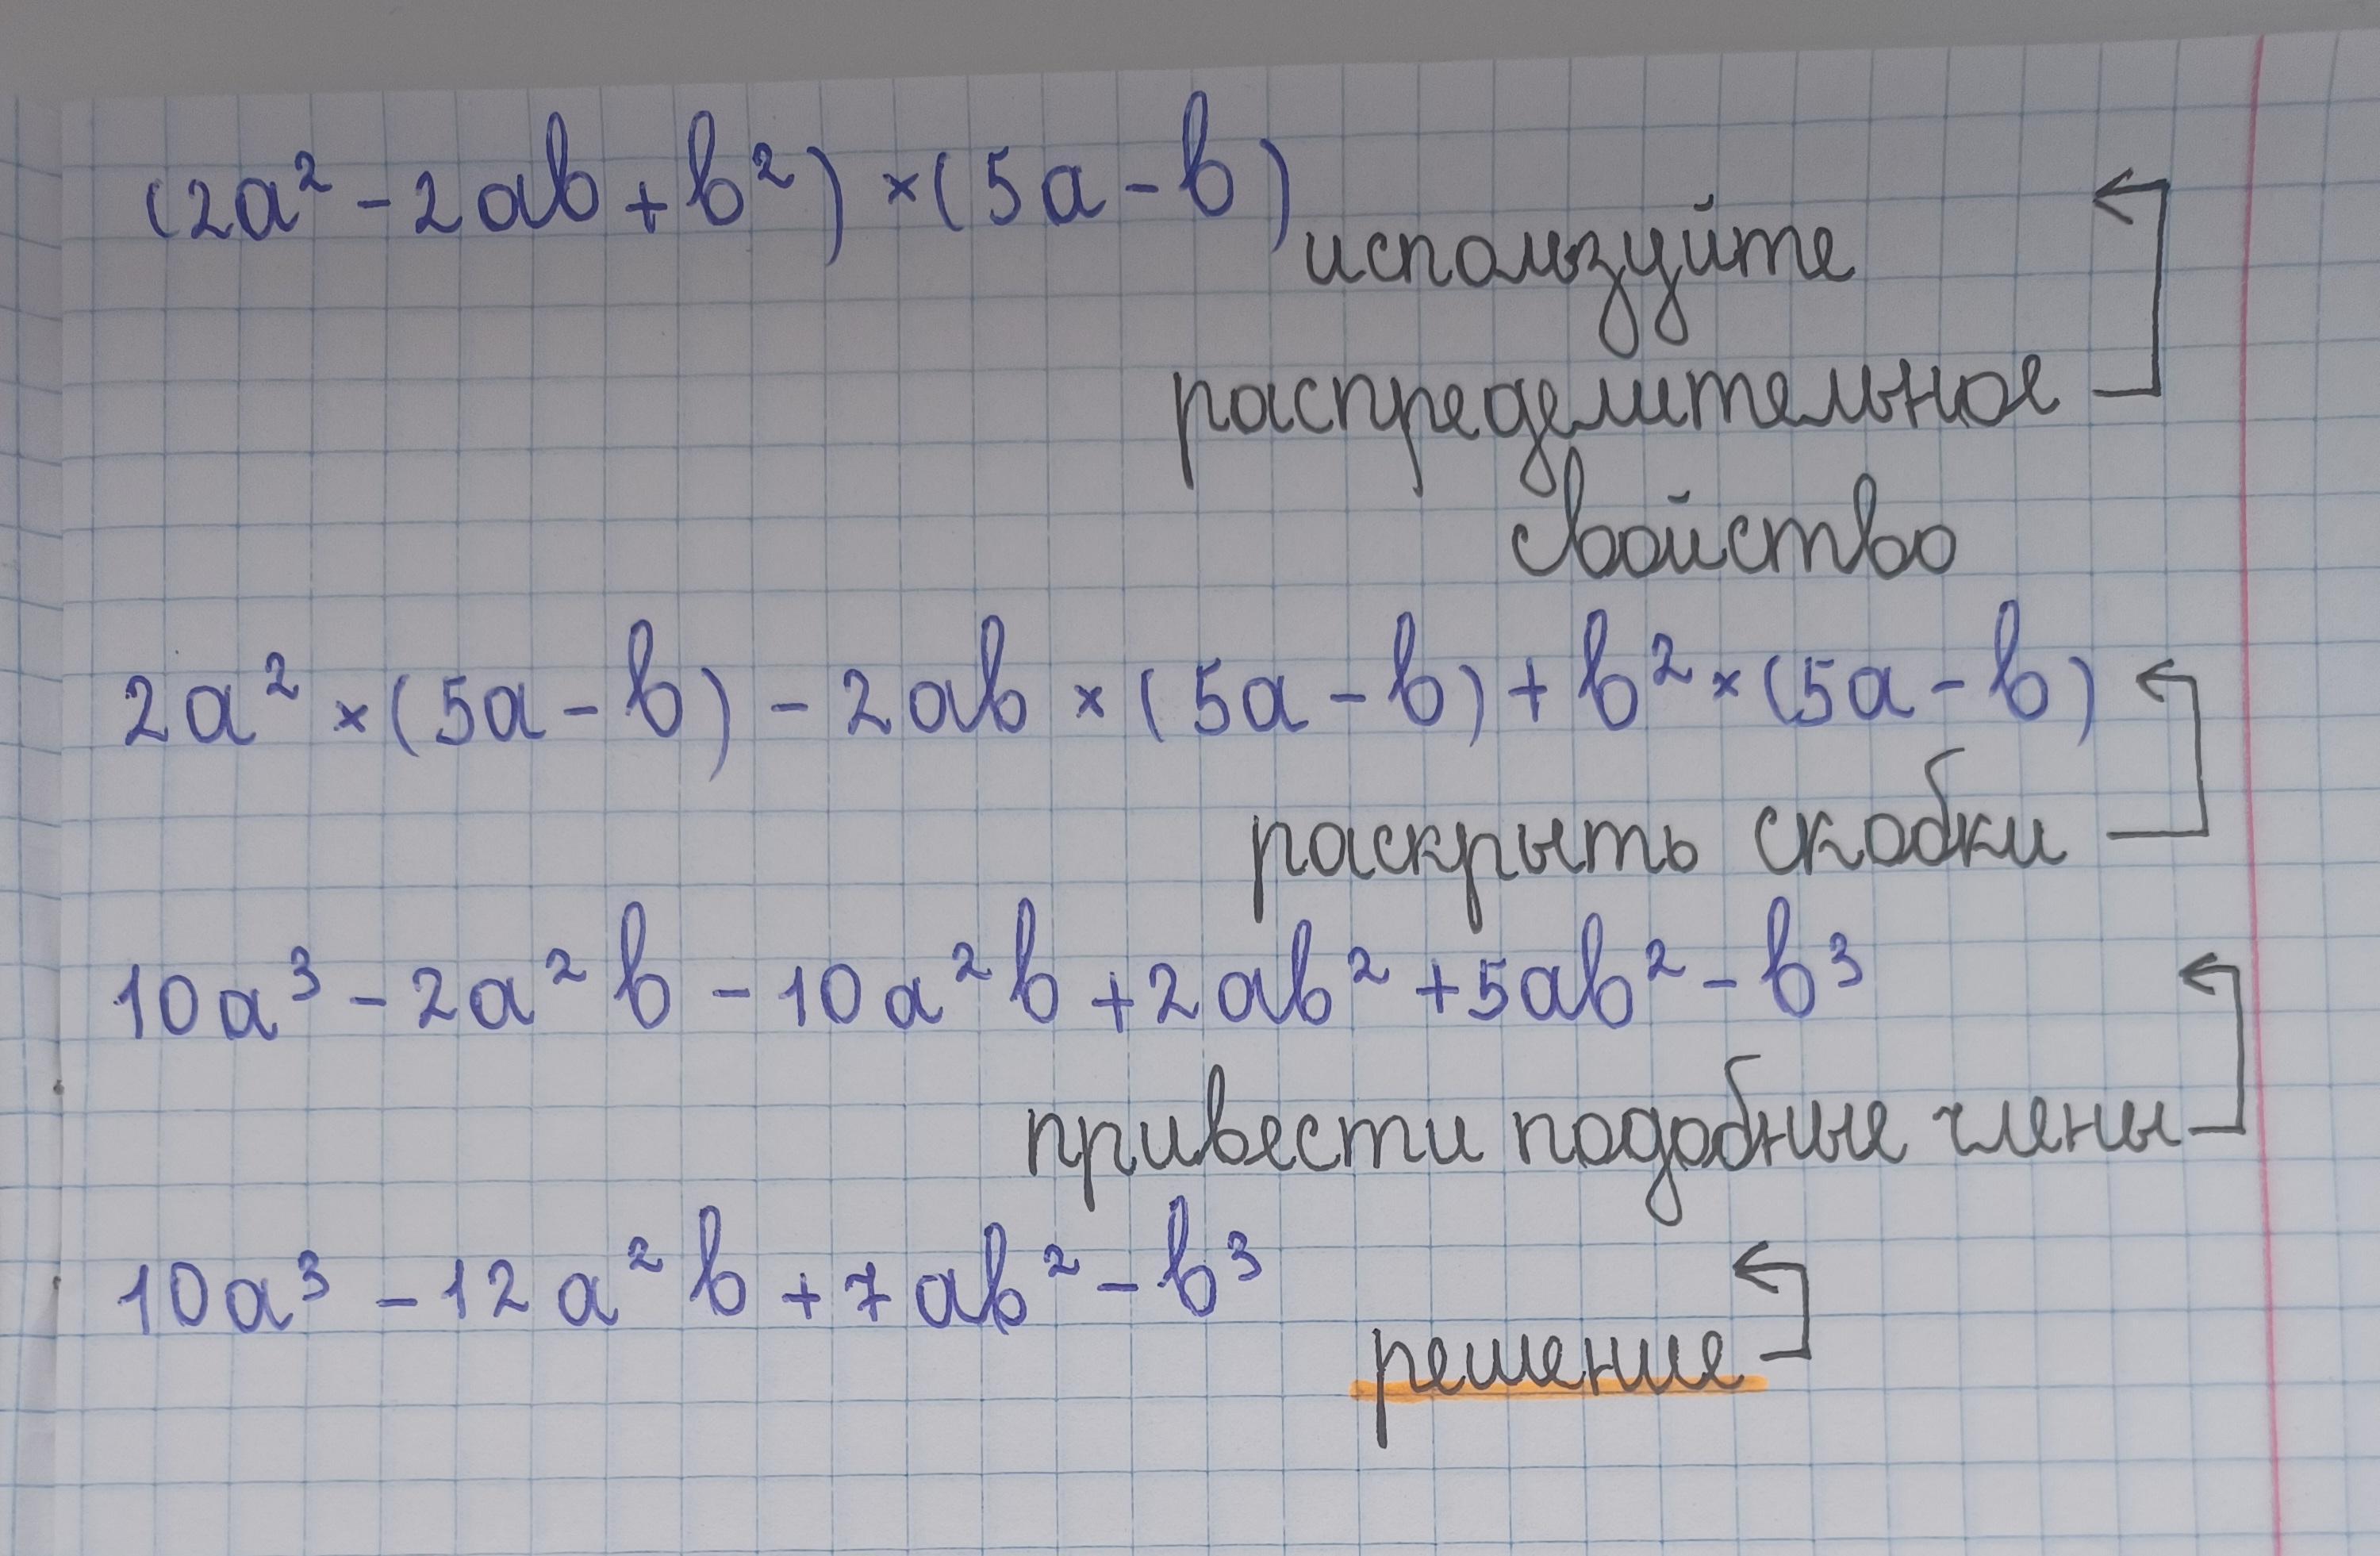 (2a² - 2ab + b²) × (5a - b)
используйте
распределительное
свойство
2a² × (5a - b) - 2ab × (5a - b) + b² × (5a - b)
раскрыть скобки
10a³ - 2a²b - 10a²b + 2ab² + 5ab² - b³
привести подобные члены
10a³ - 12a²b + 7ab² - b³
решение